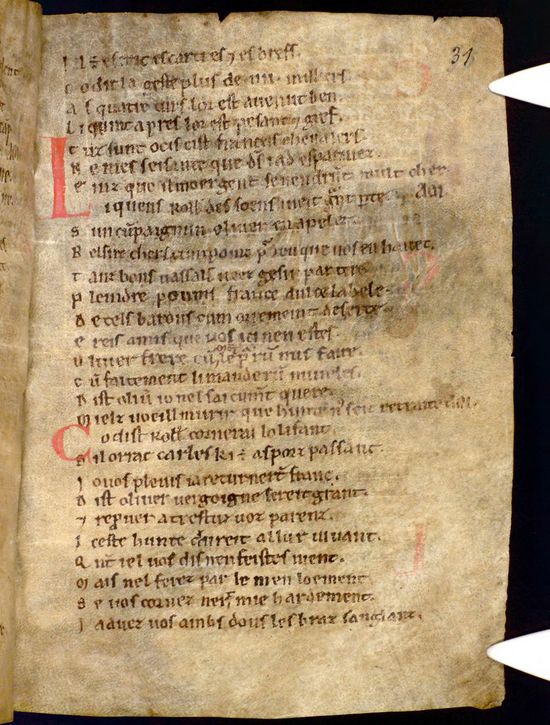 I l ē escrit es cartres ⁊ es brefs.
C o dit la geste plus de .iiii. milliers.
A s quatre esturs lor est auenut ben.
L i quint apres lor est pesant ⁊ gref.
T uz sunt ocis cist franceis cheualers
N e mes seisante que d̄s i ad esparniez.
E inz que il moergent se uendrūt mult cher.
L i quens Roll̄ des soens i ueit grāt pte. AOI
S un cūpaignun oliuer en apelet.
B el sire chers cumpainz pͬ deu que uos en haitet.
T anz bons uassals ueez gesir par tere
P leindre poums france dulce la bele.
D e tels barons cum or remeint deserte.
E reis amis que uos ici nen estes.
O liuer frere cū le purrū nus faire.
C ū faitement li manderū nuueles.
D ist oliū io nel sai cumt quere.
M ielz uoeill murir que hunte nꝰ seit retraite. AOI.
C o dist Roll̄. cornerai lolifant.
S i lorrat carles ki ē as porz passant.
I o uos pleuis ia returnerūt franc.
D ist oliuer uergoigne sereit grant.
⁊ repͬuer a trestuz uoz parenz.
I ceste hunte dureit al lur uiuant.
Q ant iel uos dis nen feistes nient.
M ais nel ferez par le men loement
S e uos cornez nert mie hardement.
I a auez uos ambsdous les braz sanglanz.